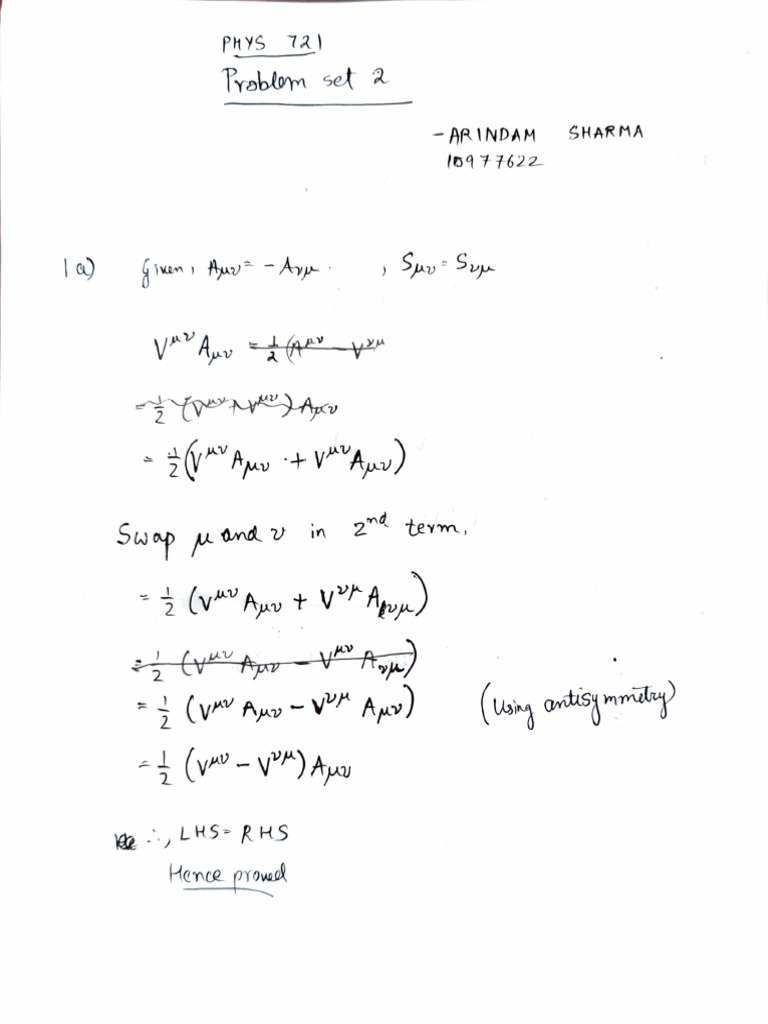 PHYS 721
Problem set 2
- ARINDAM SHARMA
10977622
1a) Given, Aμν = - Aνμ. , Sμν = Sνμ
V^μν Aμν = 1/2 (A^μν - V^νμ
= 1/2 (V^μν + V^μν) Aμν
= 1/2 (V^μν Aμν + V^μν Aμν)
Swap μ and ν in 2nd term,
= 1/2 (V^μν Aμν + V^νμ Aνμ)
= 1/2 (V^μν Aμν - V^μν Aνμ)
= 1/2 (V^μν Aμν - V^νμ Aμν) (Using antisymmetry)
= 1/2 (V^μν - V^νμ) Aμν
∴, LHS = RHS
Hence proved